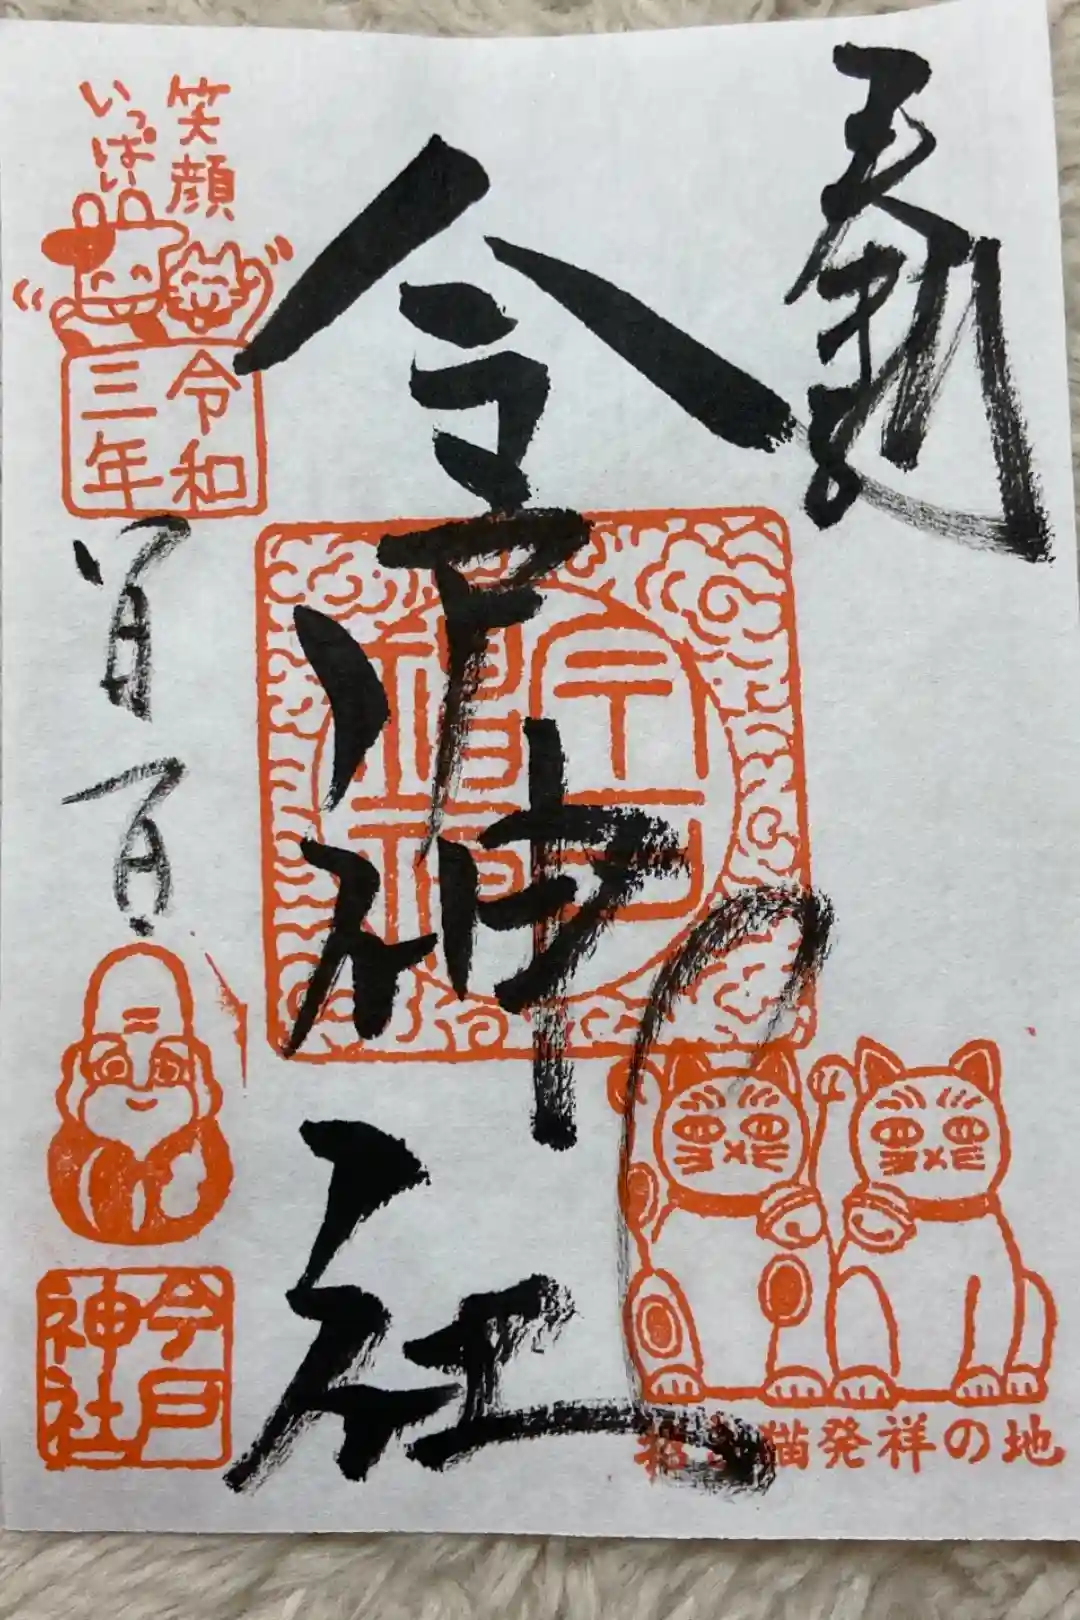 奉拝
今戸神社
笑顔
いっぱい
令和
三年
八月一日
今戸
神社
招き猫発祥の地